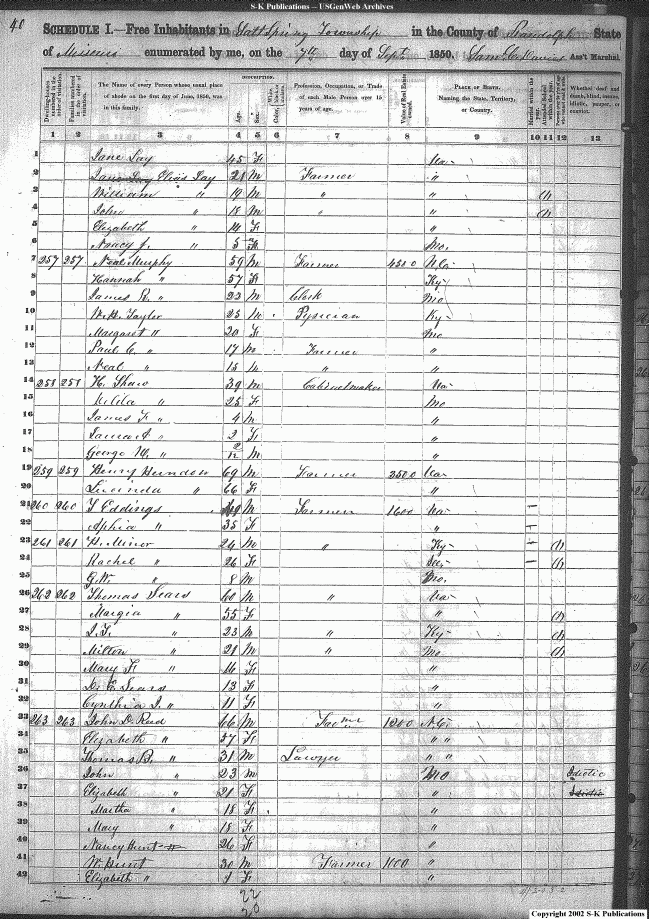 S-K Publications -- USGenWeb Archives
40
SCHEDULE I.—Free Inhabitants in Salt Spring Township in the County of Randolph State
of Missouri enumerated by me, on the 7th day of Sept 1850. Ass't Marshal
DESCRIPTION.
Dwelling-houses numbered in the order of visitation. Families numbered in the order of visitation. The Name of every Person whose usual place of abode on the first day of June, 1850, was in this family. Age. Sex. Color, Profession, Occupation, or Trade of each Male Person over 15 years of age. Value of Real Estate owned. Place of Birth. Naming the State, Territory, or Country. Married within the year. Attended School within the year. Whether deaf and dumb, blind, insane, idiotic, pauper, or convict.
1 2 3 4 5 6 7 8 9 10 11 12 13
1 Jane Lay 45 F Va
2 Elias Lay 21 M Farmer "
3 William " 19 M " " (1)
4 John " 18 M " " (1)
5 Elizabeth " 14 F "
6 Nancy J. " 5 F Mo.
7 257 257 Neal Murphy 59 M Farmer 4500 N.Ca
8 Hannah " 57 F Ky
9 James R. " 22 M Clerk Mo
10 W.H. Taylor 25 M Pysician Ky
11 Margaret " 20 F Mo
12 Paul C. " 17 M Farmer "
13 Neal " 15 M " "
14 258 258 H. Shaw 39 M Cabinetmaker Va
15 " 25 F Mo
16 James F. " 4 M "
17 " 2 F "
18 George W. " M "
19 259 259 Henry Herndon 69 M Farmer 2500 Va
20 Lucinda " 66 F "
21 260 260 Eddings M Farmer 1600 Va
22 Aphia " 35 F "
23 261 261 H. Minor 24 M " Ky (1)
24 Rachel " 26 F (1)
25 G.W. " 8 M Mo.
26 262 262 Thomas Sears 60 M " Va
27 Margia " 55 F " (1)
28 " 23 M " Ky (1)
29 Milton " 21 M " Mo (1)
30 Mary F. " 16 F "
31 Sears 13 F "
32 Cynthia J. " 11 F "
33 263 263 John D. Read 66 M Farmer 1200 N.C.
34 Elizabeth " 57 F " "
35 Thomas B. " 31 M Lawyer " "
36 John " 23 M Mo Idiotic
37 Elizabeth " 21 F " Idiotic
38 Martha " 18 F "
39 Mary " 18 F "
40 Nancy Hunt 26 F "
41 W. Hunt 30 M Farmer 1000 "
42 Elizabeth " 1 F "
22
20
Copyright 2002 S-K Publications